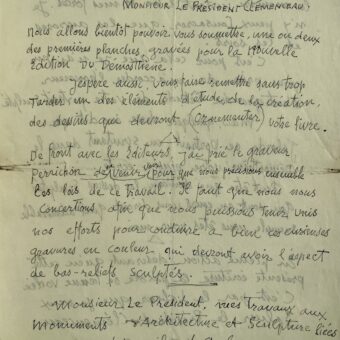 Monsieur Le Président Clemenceau:
Nous allons bientôt pouvoir vous soumettre, une ou deux
des premières planches, gravées pour la Nouvelle
Edition du Démosthène.
J'espère aussi, vous faire remettre sans trop
Tarder, un des éléments d'étude de la création,
des dessins qui devront (Ornementer) votre livre.
De front avec les Editeurs j'ai prié le graveur
Perrichon de venir pour que nous précisions ensemble
les lois de ce travail. Il faut que nous nous
concertions afin que nous puissions tenir unis
nos efforts pour conduire à bien ces
gravures en couleur qui devront avoir l'aspect
de bas-reliefs sculptés.
Monsieur Le Président, mes travaux aux
Monuments Architecture et Sculpture liées